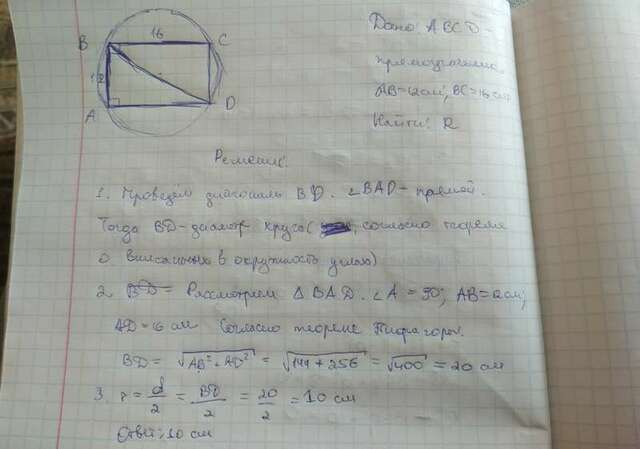 B 16 C
12
A D
Дано ABCD -
прямоугольник
AB=12см, BC=16см
Найти: R
Решение:
1. Проведём диагональ BD. ∠BAD - прямой.
Тогда BD - диаметр круга (согласно теореме
о вписанных в окружность углах)
2. BD = Рассмотрим △ BAD. ∠A = 90°, AB=12см,
AD=16 см. Согласно теореме Пифагора.
BD = √AB²+AD² = √144+256 = √400 = 20 см
3. r = d/2 = BD/2 = 20/2 = 10 см
Ответ: 10 см